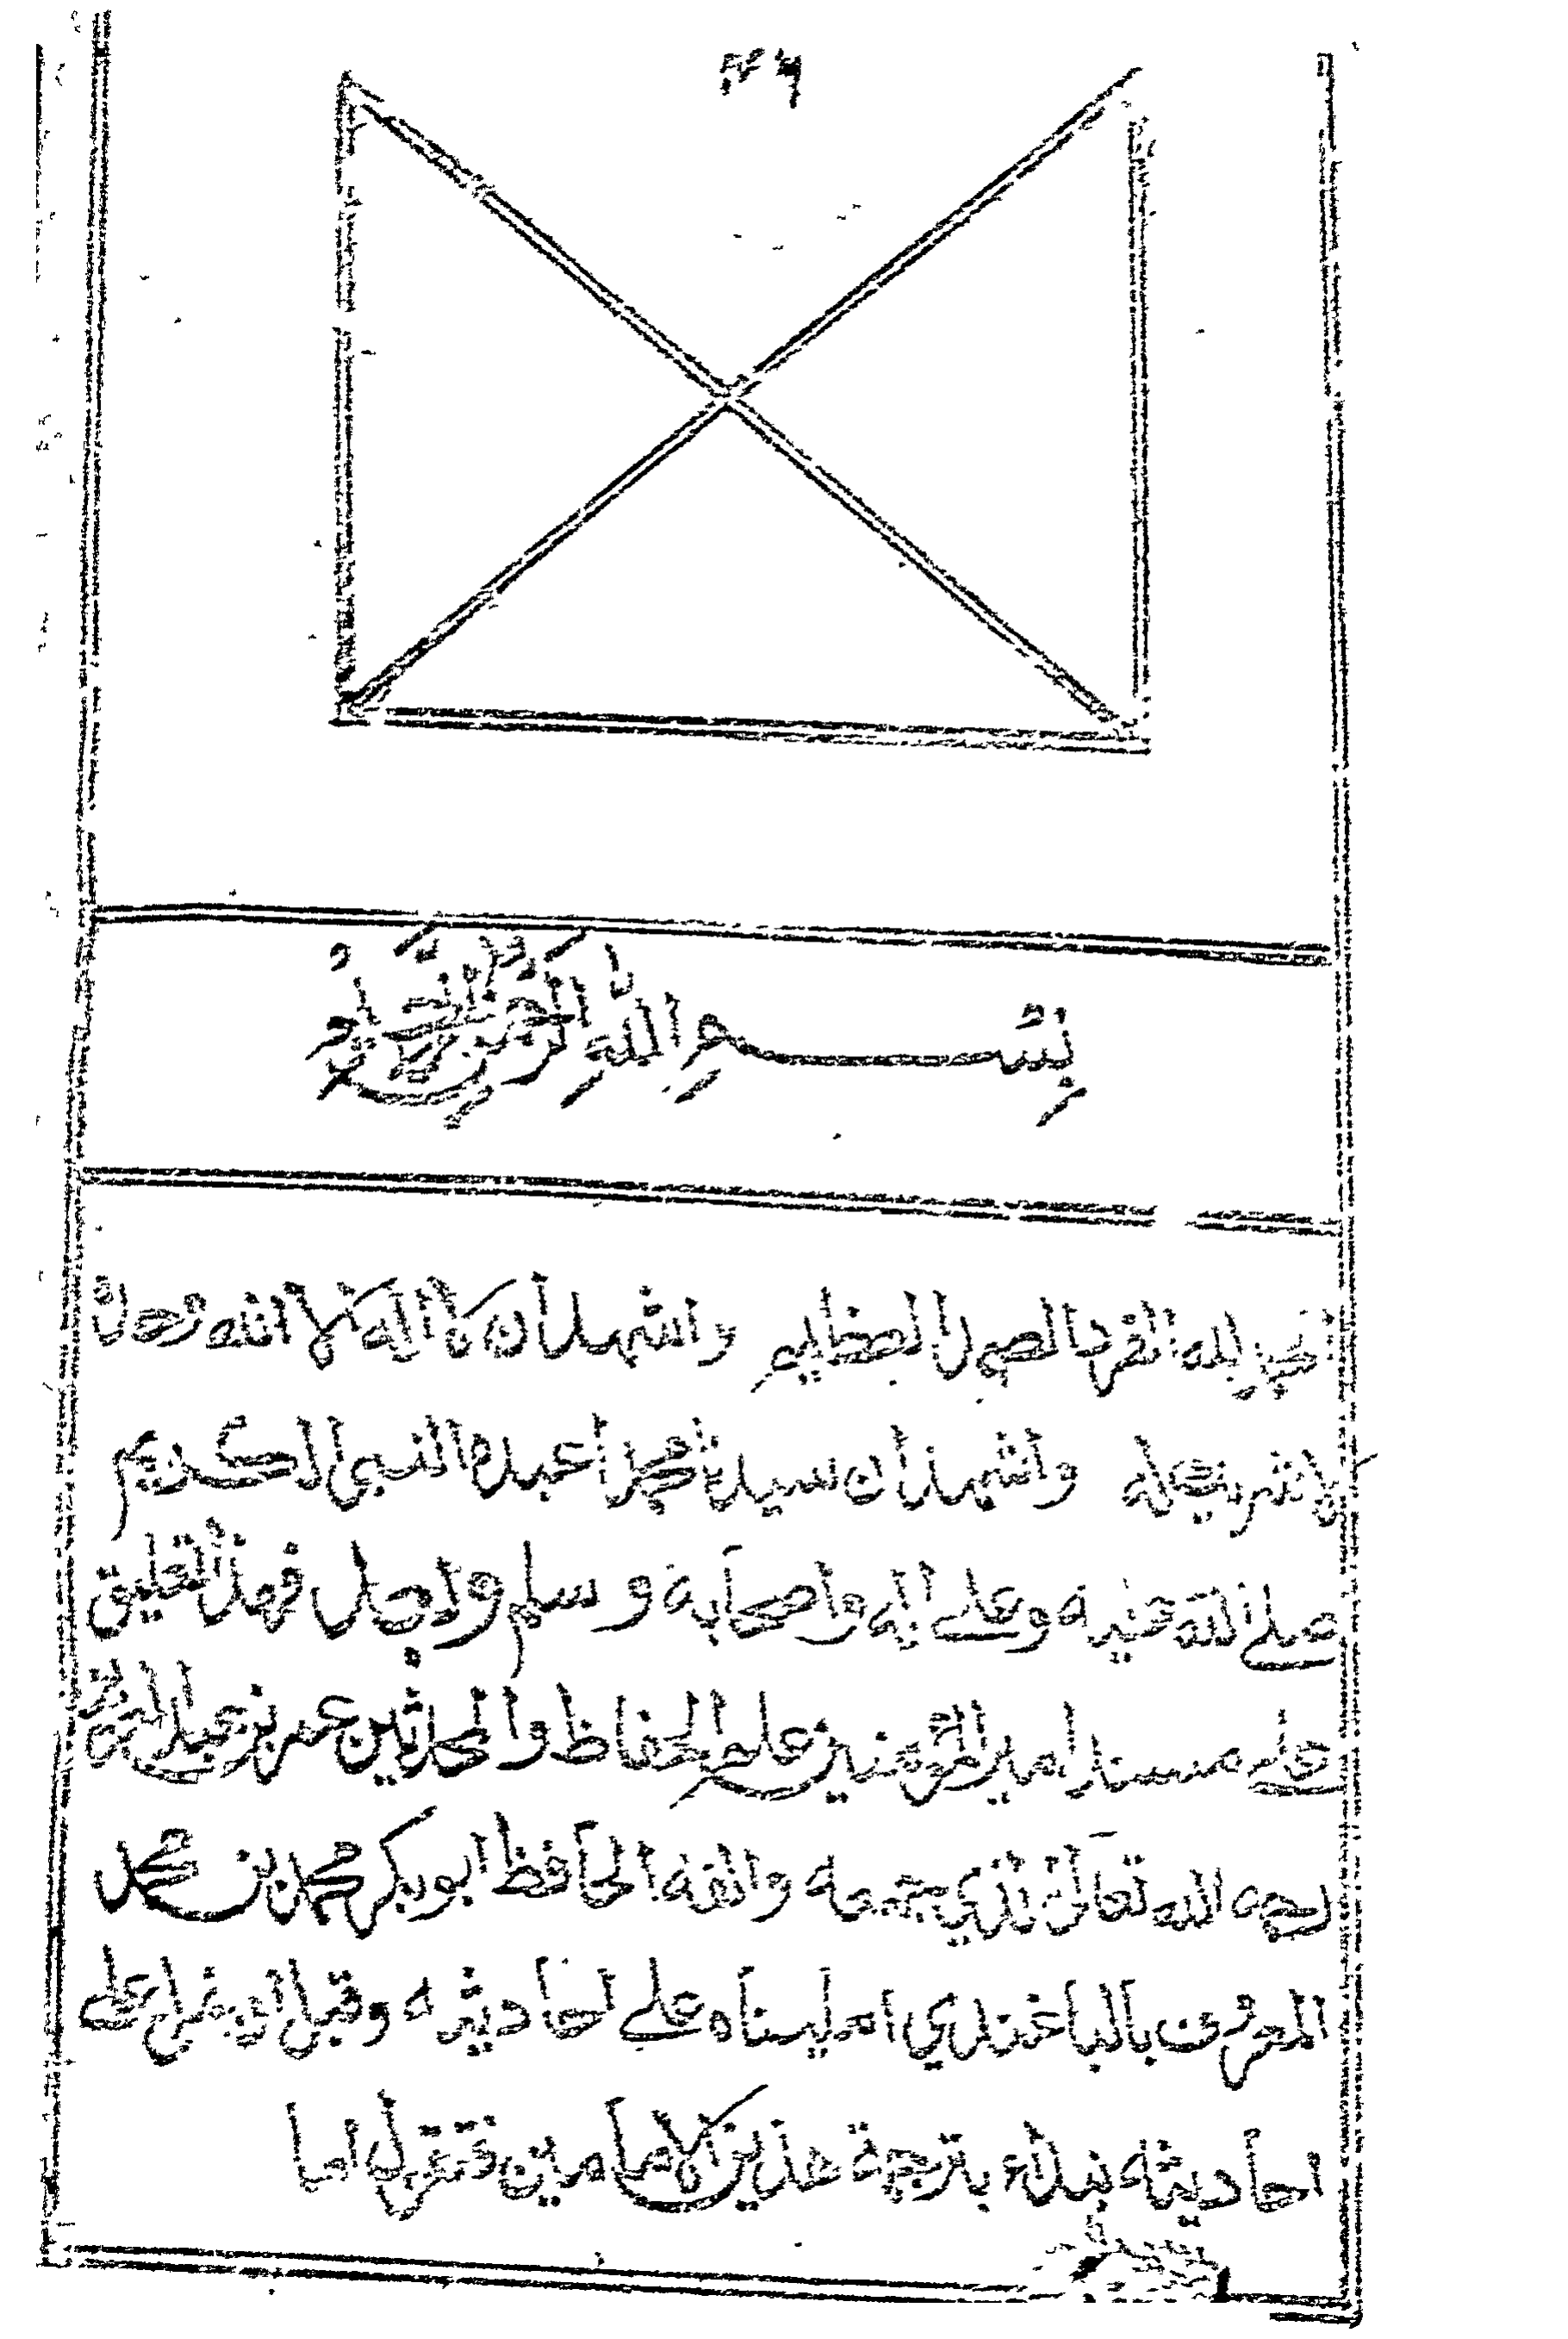 بِسْمِ اللهِ الرَّحْمٰنِ الرَّحِيْمِ
الحمد لله الفرد الصمد العظيم واشهد ان لا اله الا الله وحده
لا شريك له واشهد ان سيدنا محمدا عبده النبى الكريم
صلے الله عليه وعلے اله واصحابة وسلم وبعد فهذا تعليق
علے مسند امير المؤمنين علم الحفاظ والمحدثين عمر بن عبد العزيز
رحمه الله تعالى الذي جمعه والفه الحافظ ابوبكر محمد بن محمد
المعروف بالباغندي امليناه علے احاديثه وقبل ان علے
احاديثه بترجمة هذين الامامين فنقول اما